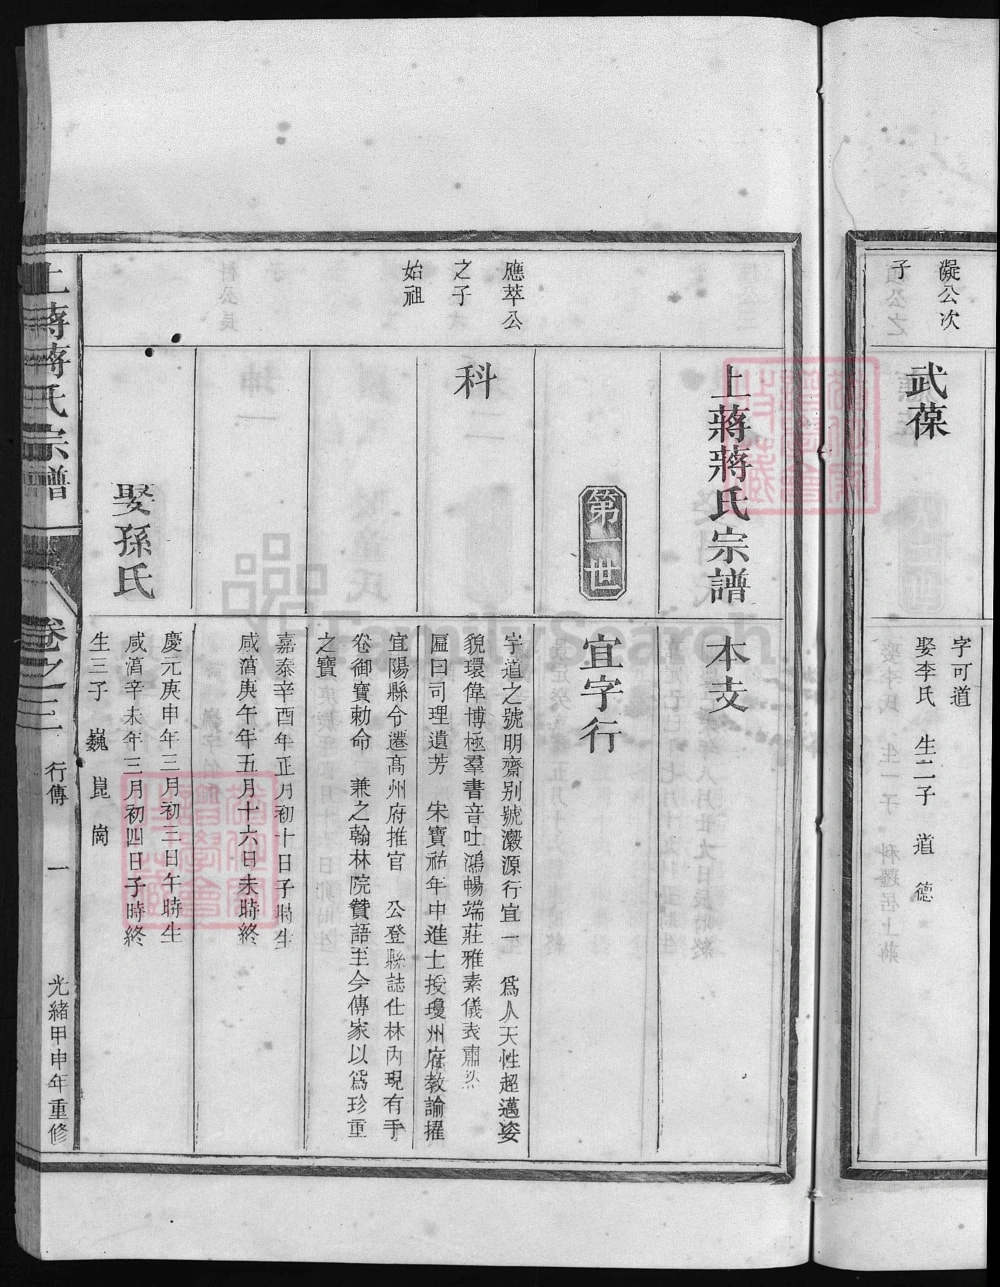 凝公次
子
武葆
字可道
娶李氏　生二子　道　德
上蔣蔣氏宗譜
本支
第一世
宜字行
應萃公
之子
始祖
科
字道之號明齋別號瀫源行宜一　爲人天性超邁姿
貌環偉博極羣書音吐鴻暢端莊雅素儀表肅然
區曰司理遺芳　宋寶祐年中進士授瓊州府教諭擢
宜陽縣令遷髙州府推官　公登縣誌仕林內現有手
卷御寶勅命　兼之翰林院贊語至今傳家以爲珍重
之寶
嘉泰辛酉年正月初十日子時生
咸湻庚午年五月十六日未時終
娶孫氏
慶元庚申年三月初三日午時生
咸湻辛未年三月初四日子時終
生三子　巍　崑　崗
上蔣蔣氏宗譜
卷之二
行傳
一
光緖甲申年重修
FamilySearch